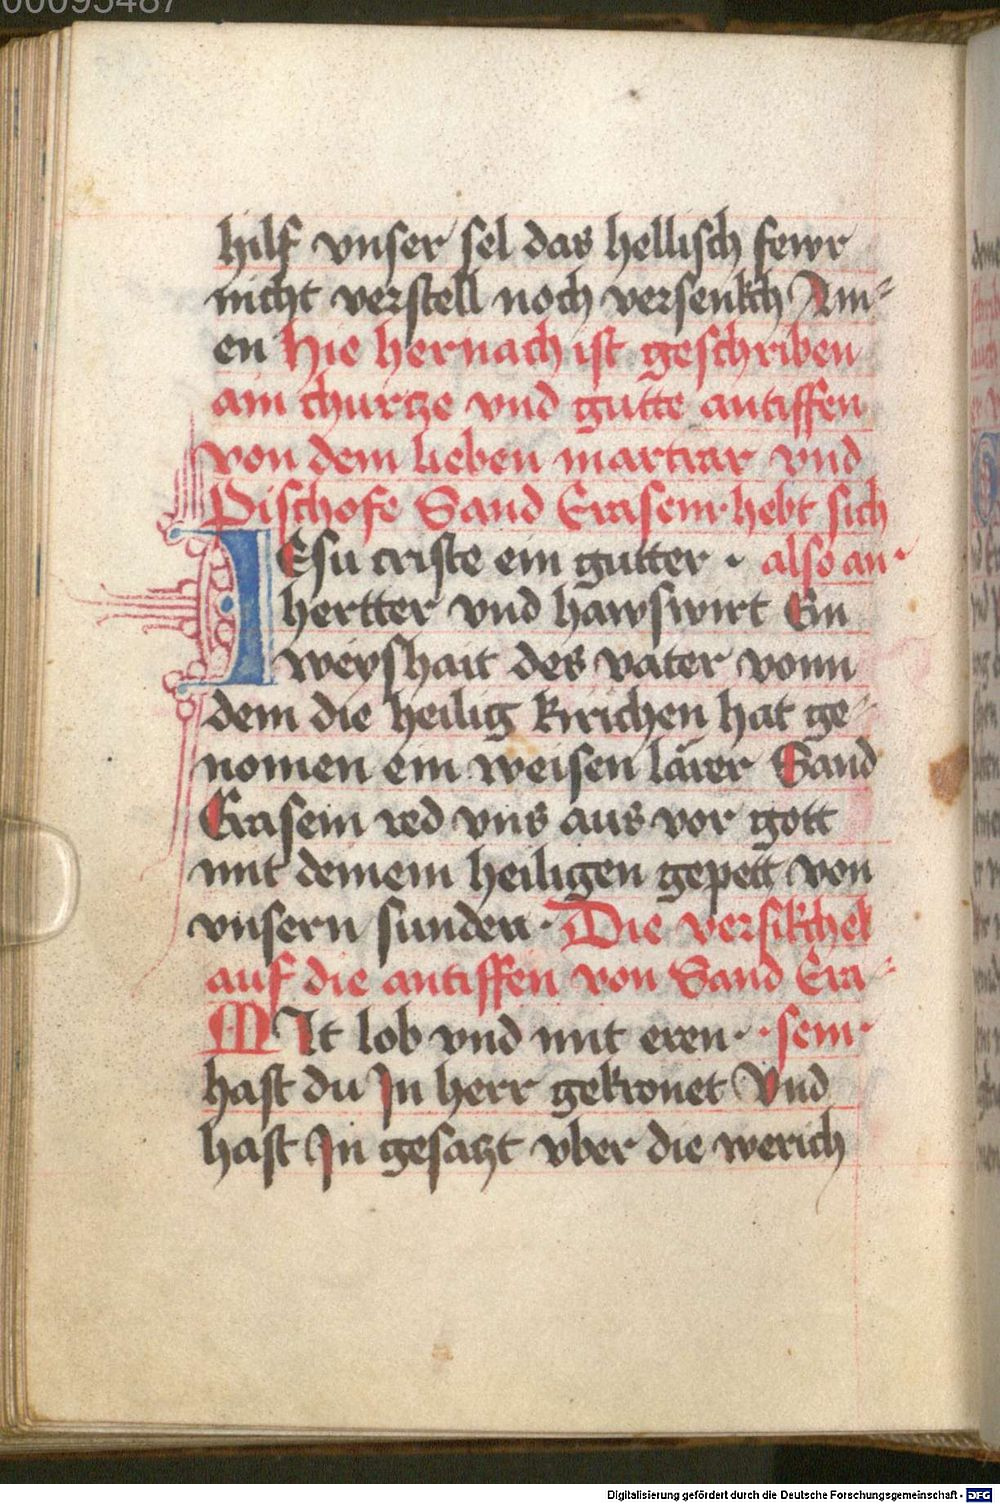 00095487
hilf vnser sel das hellisch fewr
nicht verstell noch versenkch Am-
en Hie hernach ist geschriben
ain churtze vnd gutte antiffen
von dem lieben martrar vnd
Pischofe Sand Erasem· hebt sich
IEsu criste ein gutter · also an·
hertter vnd hawswirt Ein
weyshait des vater vonn
dem die heilig kirichen hat ge-
nomen ein weisen lärer Sand
Erasem red vns aus vor gott
mit deinem heiligen gepett von
vnsern sunden· Die versikchel
auf die antiffen von Sand Era-
MIt lob vnd mit eren· ·sem·
hast du In herr gekronet Vnd
hast In gesatzt vber die werich
Digitalisierung gefördert durch die Deutsche Forschungsgemeinschaft - DFG